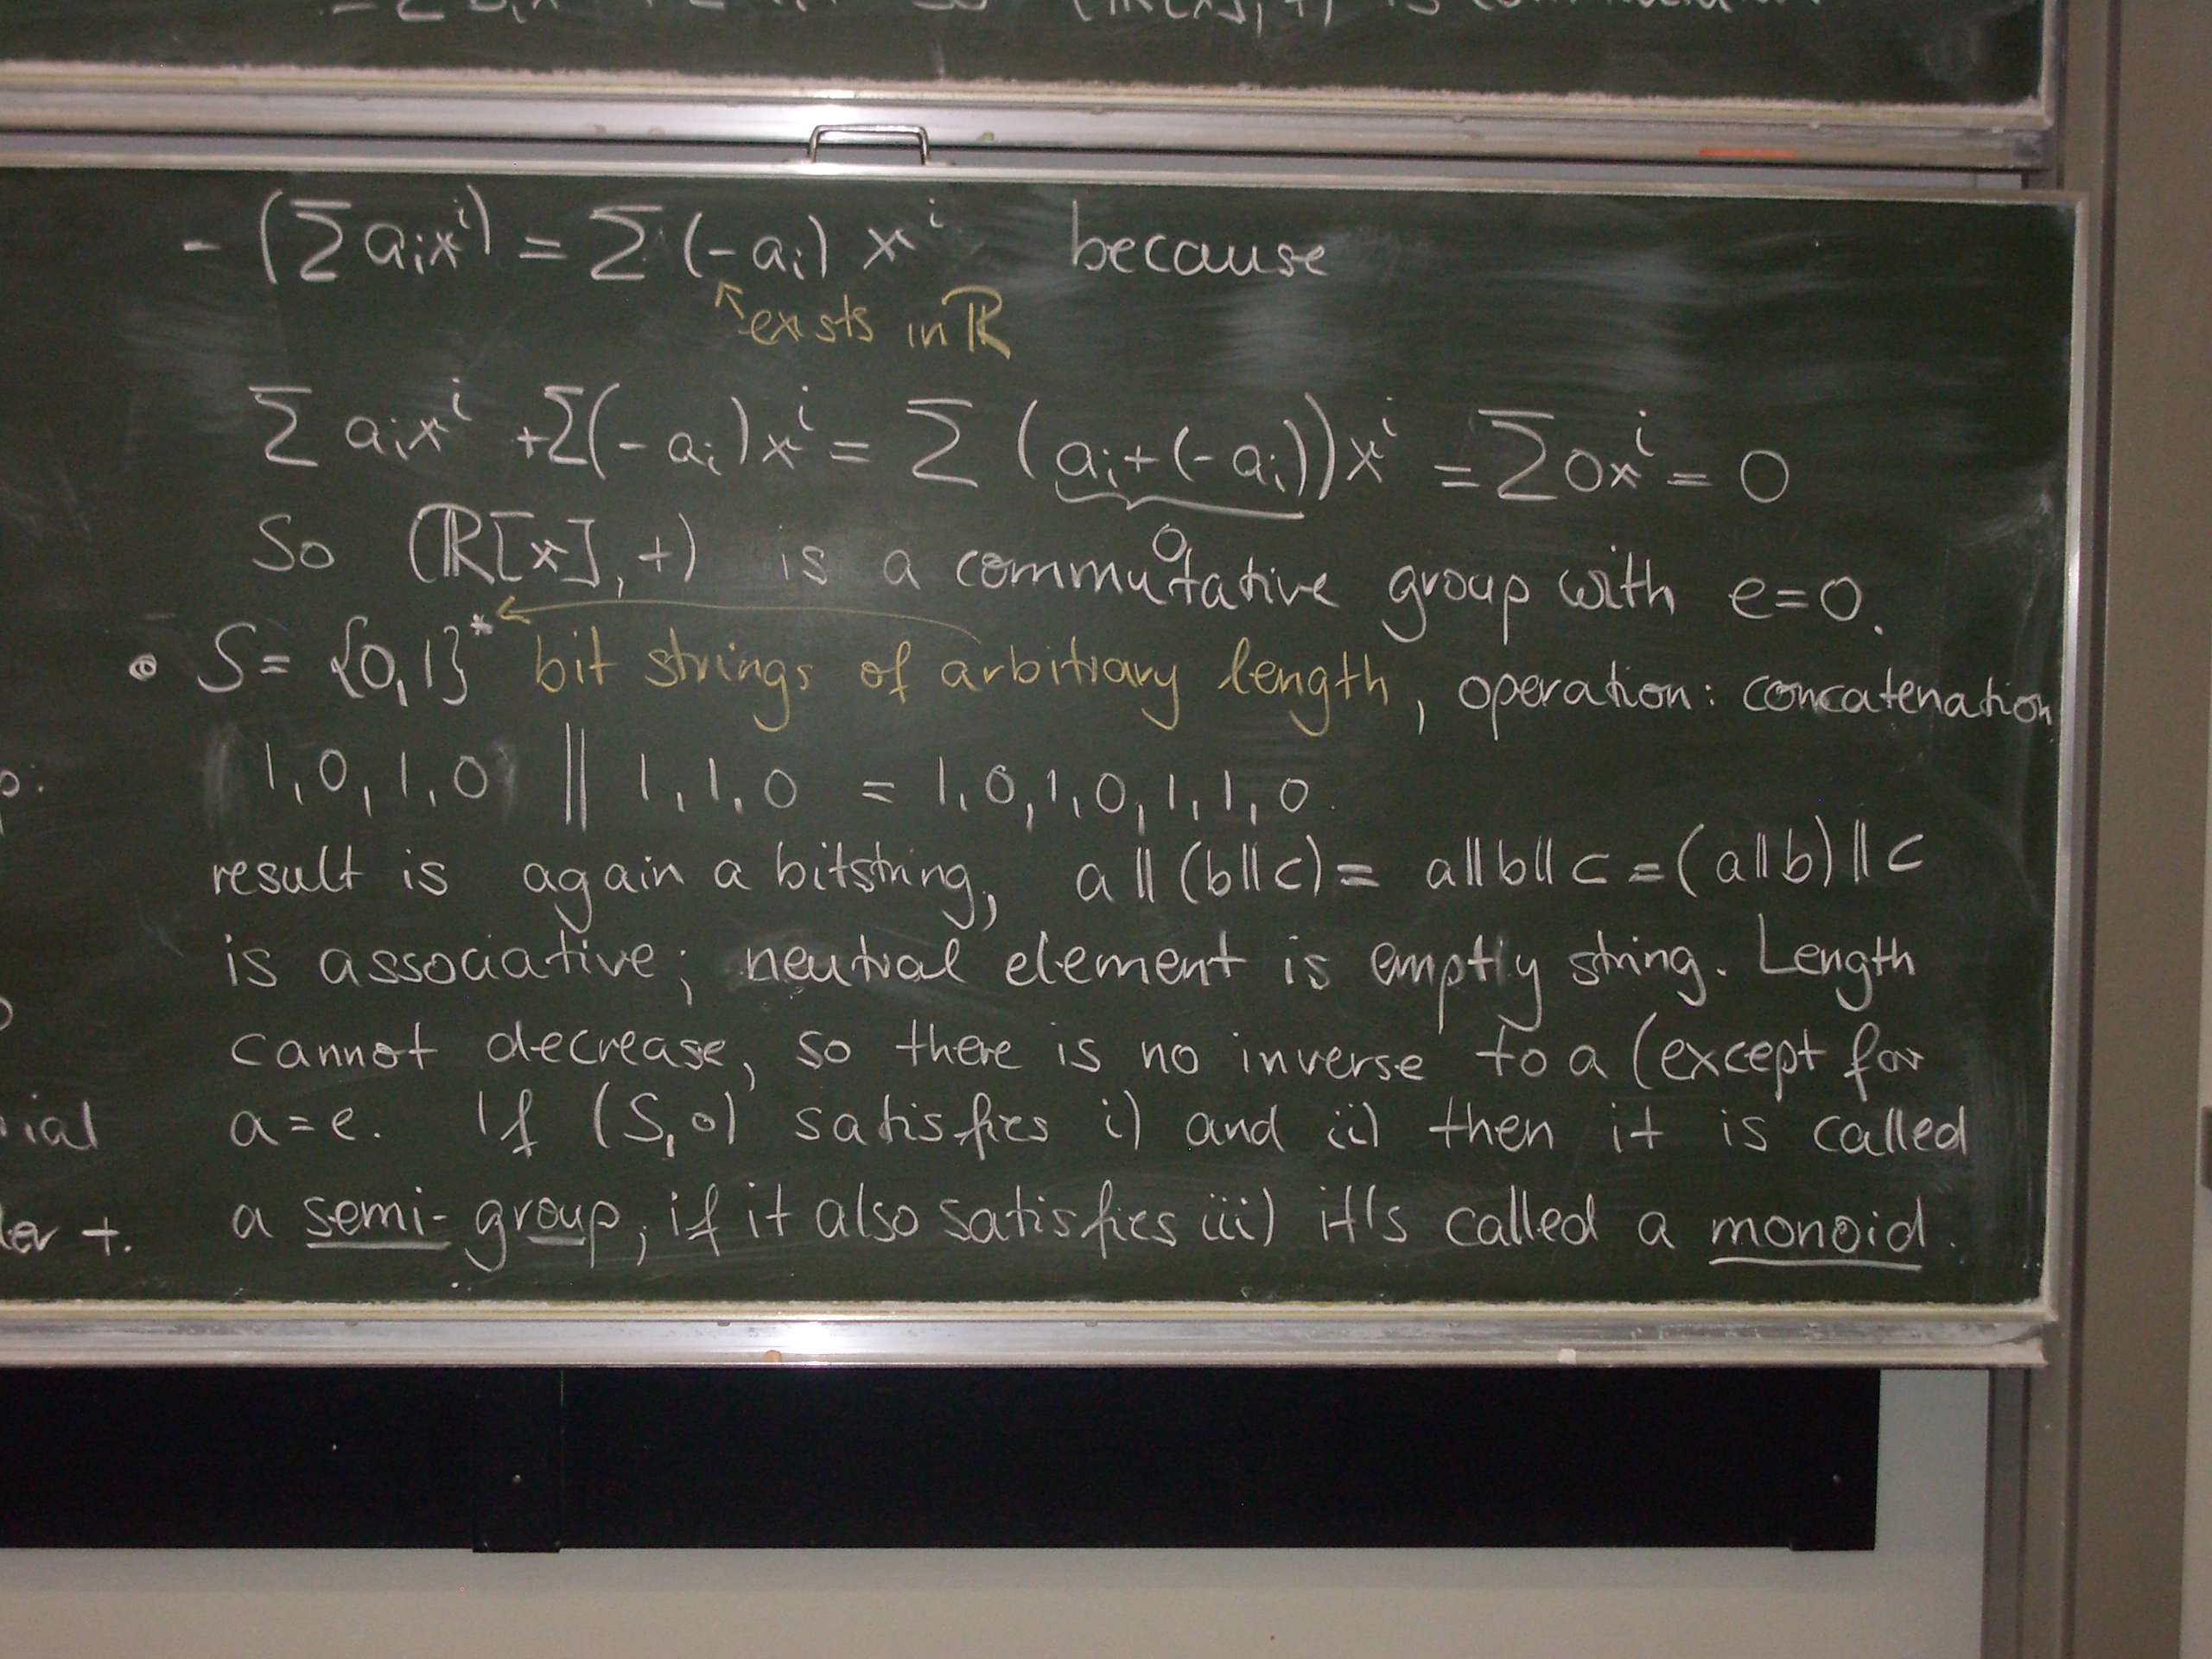 - (∑ aᵢxⁱ) = ∑ (-aᵢ) xⁱ because
↖ exists in ℝ
∑ aᵢxⁱ + ∑(-aᵢ)xⁱ = ∑ (aᵢ+(-aᵢ))xⁱ = ∑0xⁱ = 0
0
So (ℝ[x], +) is a commutative group with e=0.
• S = {0,1}* bit strings of arbitrary length, operation: concatenation
1,0,1,0 || 1,1,0 = 1,0,1,0,1,1,0
result is again a bitstring, a||(b||c) = a||b||c = (a||b)||c
is associative; neutral element is empty string. Length
cannot decrease, so there is no inverse to a (except for
a=e. If (S,∘) satisfies i) and ii) then it is called
a semi-group, if it also satisfies iii) it's called a monoid.